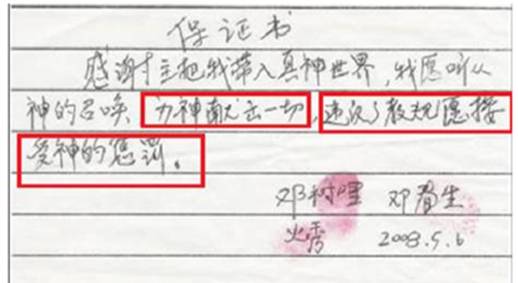 保证书
感谢主把我带入真神世界,我愿听从
神的召唤 为神献出一切,违反了教规愿接
受神的惩罚。
邓树 邓 生
火秀 2008.5.6